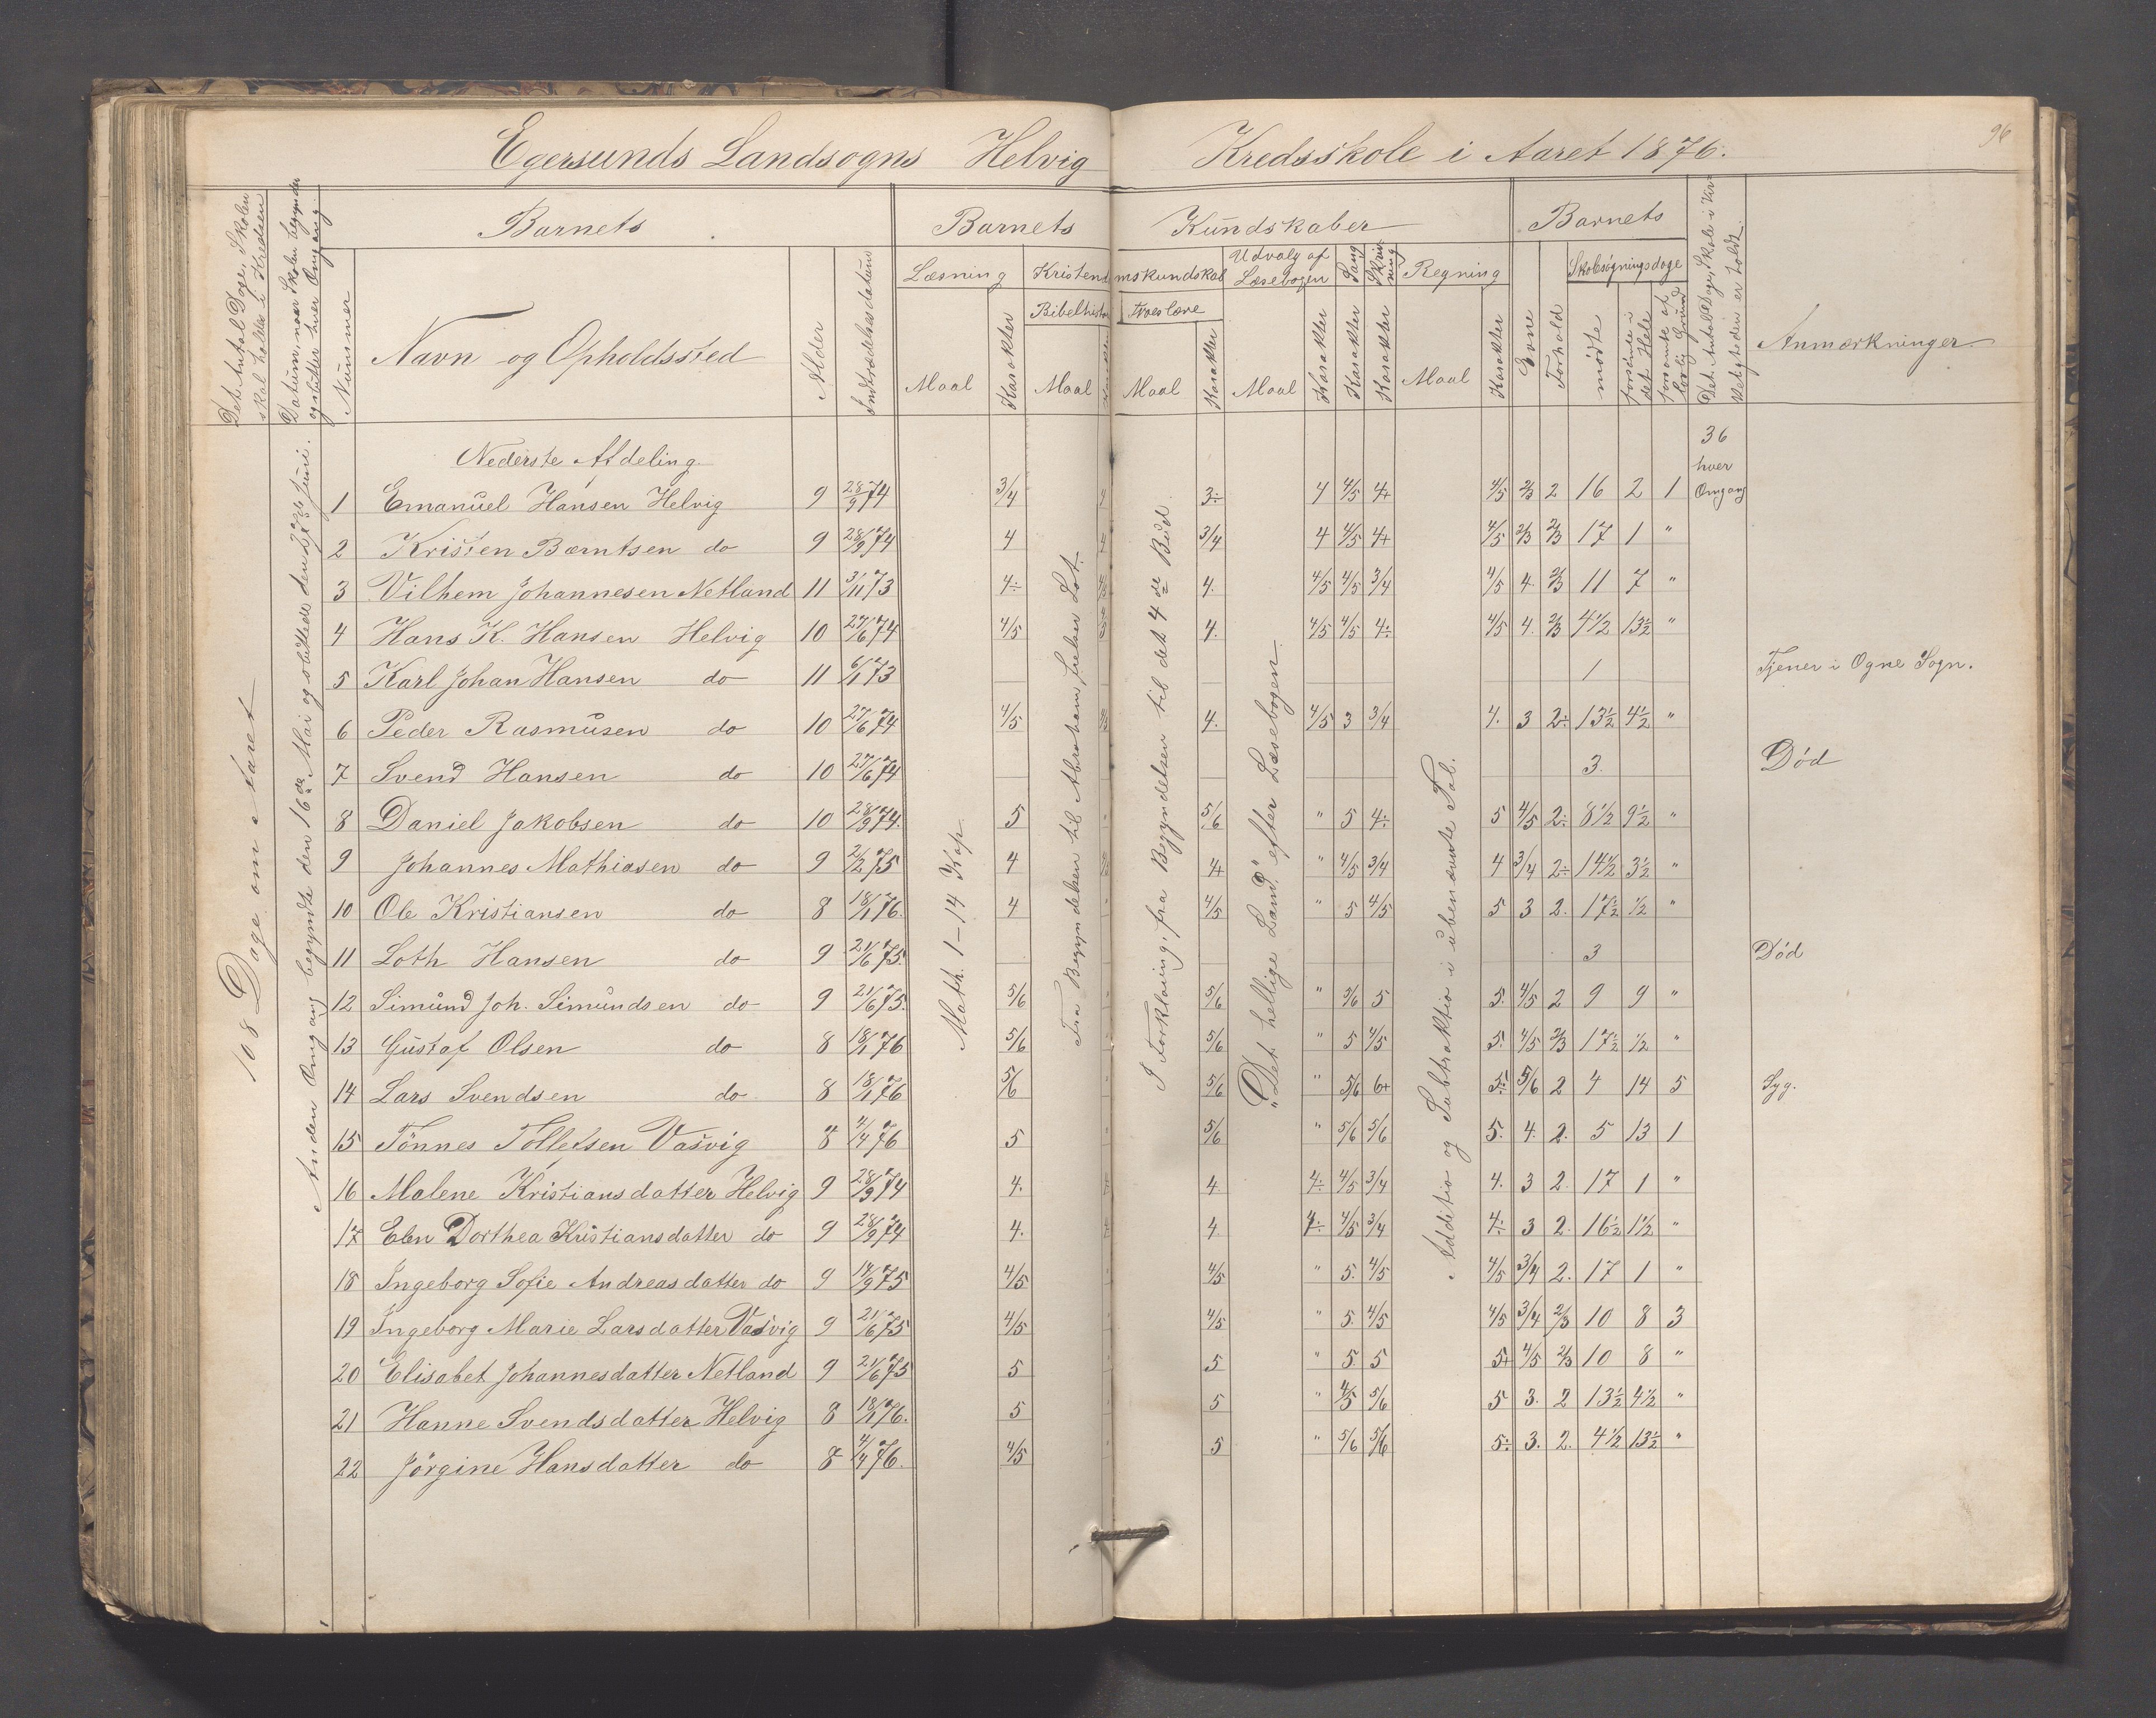 96
Egersunds Landsogns Helvig Kredsskole i Aaret 1876.
Det Antal Dage, Skolen skal holdes i Kredsen
Datum, naar Skolen begynder og slutter hver Omgang.
Nummer
Barnets
Navn og Opholdssted
Alder
Indtrædelsesdatum
Barnets Kundskaber
Læsning
Maal
Karakter
Kristendomskundskab
Bibelhistorie
Maal
Troeslære
Maal
Karakter
Udvalg af Læsebogen
Maal
Karakter
Sang
Karakter
Skrivning
Karakter
Regning
Maal
Karakter
Barnets
Evne
Forhold
Skolesøgningsdage
mødte
forsømte i det Hele
forsømte af lovlig Grund
Det Antal Dage, Skole i Virkeligheden er holdt.
Anmærkninger
108 Dage om Aaret
Anden Omgang begyndte den 16de Mai og sluttede den Juni.
Math. 1-14 Kap.
Fra Begyndelsen til Abraham frelser Lot.
I Forklaring, fra Begyndelsen til det 4de Bud.
"Det hellige Land." efter Læsebogen.
Additio og Subtraktio i ubenævnte Tal.
36 hver Omgang
Nederste Afdeling
1 Emanuel Hansen Helvig 9 28/9 74 3/4 4 3÷ 4 4/5 4+ 4/5 2/3 2 16 2 1
2 Kristen Bærntsen do 9 28/9 74 4 4 3/4 4 4/5 4+ 4/5 2/3 2/3 17 1 "
3 Vilhem Johannesen Netland 11 3/11 73 4÷ 4. 4/5 4/5 3/4 4/5 4. 2/3 11 7 "
4 Hans K. Hansen Helvig 10 27/6 74 4/5 4. 4/5 4/5 4÷ 4/5 4. 2/3 4 1/2 13 1/2 "
5 Karl Johan Hansen do 11 6/1 73 1 Tjener i Ogne Sogn.
6 Peder Rasmusen do 10 27/6 74 4/5 4. 4/5 3 3/4 4. 3 2÷ 13 1/2 4 1/2 "
7 Svend Hansen do 10 27/6 74 3. Död
8 Daniel Jakobsen do 10 28/9 74. 5 5/6 " 5 4÷ 5 4/5 2÷ 8 1/2 9 1/2 "
9 Johannes Mathiasen do 9 2/2 75 4 4+ " 4/5 3/4 4 3/4 2÷ 14 1/2 3 1/2 "
10 Ole Kristiansen do 8 18/1 76. 4 4/5 " 5 4/5 5 3 2. 17 1/2 1/2 "
11 Loth Hansen do 9 21/6 75. 3 Död
12 Simund Joh. Simundsen do 9 21/6 75. 5/6 5/6 " 5/6 5 5. 4/5 2 9 9 "
13 Gustaf Olsen do 8 18/1 76 5/6 5/6 " 5 4/5 5. 4/5 2/3 17 1/2 1/2 "
14 Lars Svendsen do 8 18/1 76 5/6 5/6 " 5/6 6+ 5÷ 5/6 2 4 14 5 Syg.
15 Tönnes Tolletsen Vasvig 8 4/4 76 5 5/6 " 5/6 5/6 5. 4. 2. 5 13 1
16 Malene Kristiansdatter Helvig 9 28/9 74 4. 4. 4÷ 4/5 3/4 4. 3 2. 17 1 "
17 Elen Dorthea Kristiansdatter do 9 28/9 74 4. 4 4÷ 4/5 3/4 4÷ 3 2. 16 1/2 1 1/2 "
18 Ingeborg Sofie Andreasdatter do 9 14/9 75 4/5 4/5 " 5. 4/5 4/5 3/4 2. 17 1 "
19 Ingeborg Marie Larsdatter Vasvig 9 21/6 75 4/5 4/5 " 5. 4/5 4/5 3/4 2/3 10 8 3
20 Elisabet Johannesdatter Netland 9 21/6 75 5 5 " 5. 5 5+ 4/5 2/3 10 8 "
21 Hanne Svendsdatter Helvig 8 18/1 76. 5 5 " 4/5 5/6 5 3. 2 13 1/2 4 1/2 "
22 Jörgine Hansdatter do 8 4/4 76. 4/5 5 " 5/6 5/6 5÷ 3. 2. 4 1/2 13 1/2 "